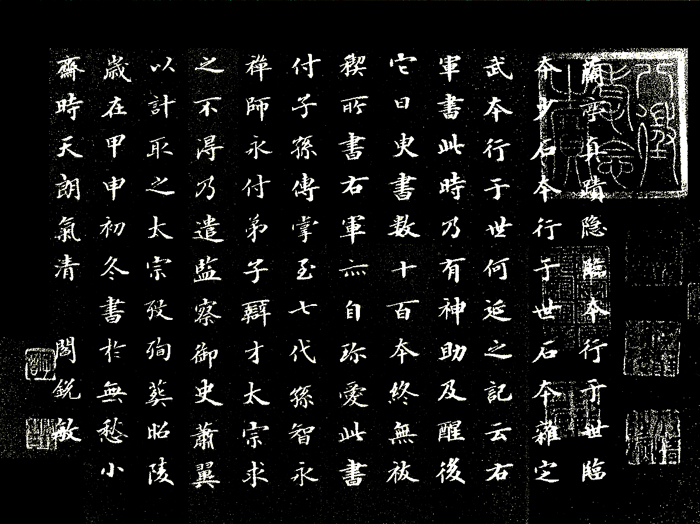 蘭亭真蹟隐臨本行于世臨
本少石本行于世石本雜定
武本行于世何延之記云右
軍書此時乃有神助及醒後
它日更書數十百本終無祓
禊所書右軍亦自珍愛此書
付子孫傳掌至七代孫智永
禅師永付弟子辯才太宗求
之不得乃遣監察御史蕭翼
以計取之太宗殁殉葬昭陵
歲在甲申初冬書於無愁小
齋時天朗氣清 閻銳敏